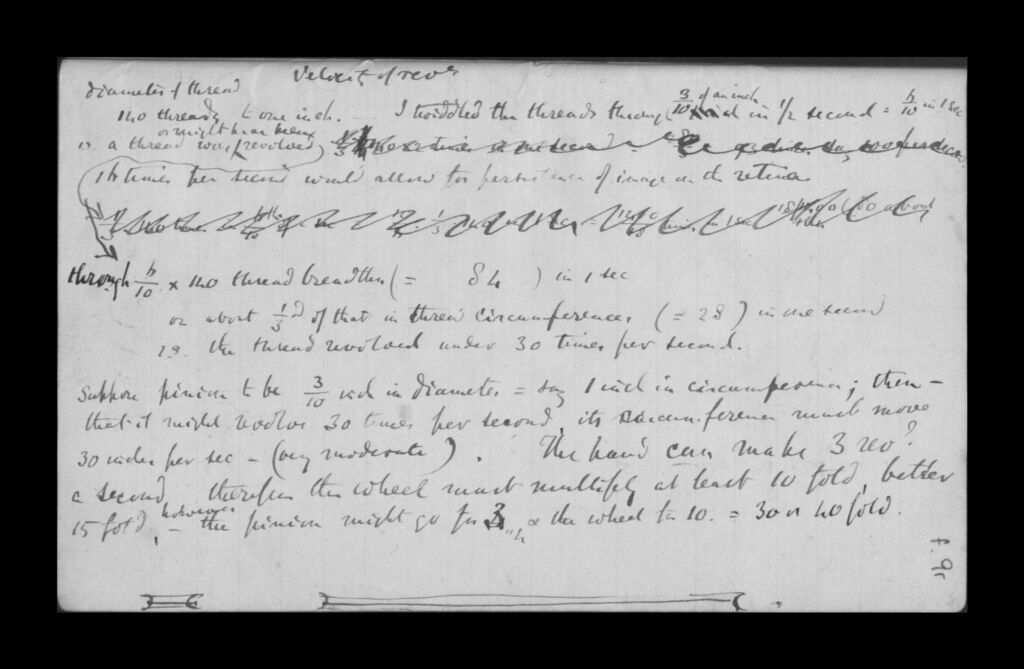 Velocity of revns
diameter of thread
140 threads to one inch. — I twiddled the threads through 3/10 of an inch in 1/2 second = 6/10 in 1 sec
or might have been
i.e. a thread was (revolved)
14 times per second would allow for persistence of image on the retina
through 6/10 × 140 thread breadths (= 84 ) in 1 sec
or about 1/3rd of that in thread circumferences (= 28) in one second
i.e. the thread revolved under 30 times per second.
Suppose pinion to be 3/10 inch in diameter = say 1 inch in circumference; then —
that it might revolve 30 times per second, its circumference must move
30 inches per sec — (very moderate). The hand can make 3 revs
a second, therefore the wheel must multiply at least 10 fold, better
15 fold, however — the pinion might go for & the wheel to 10. = 30 or 40 fold.
f.9r